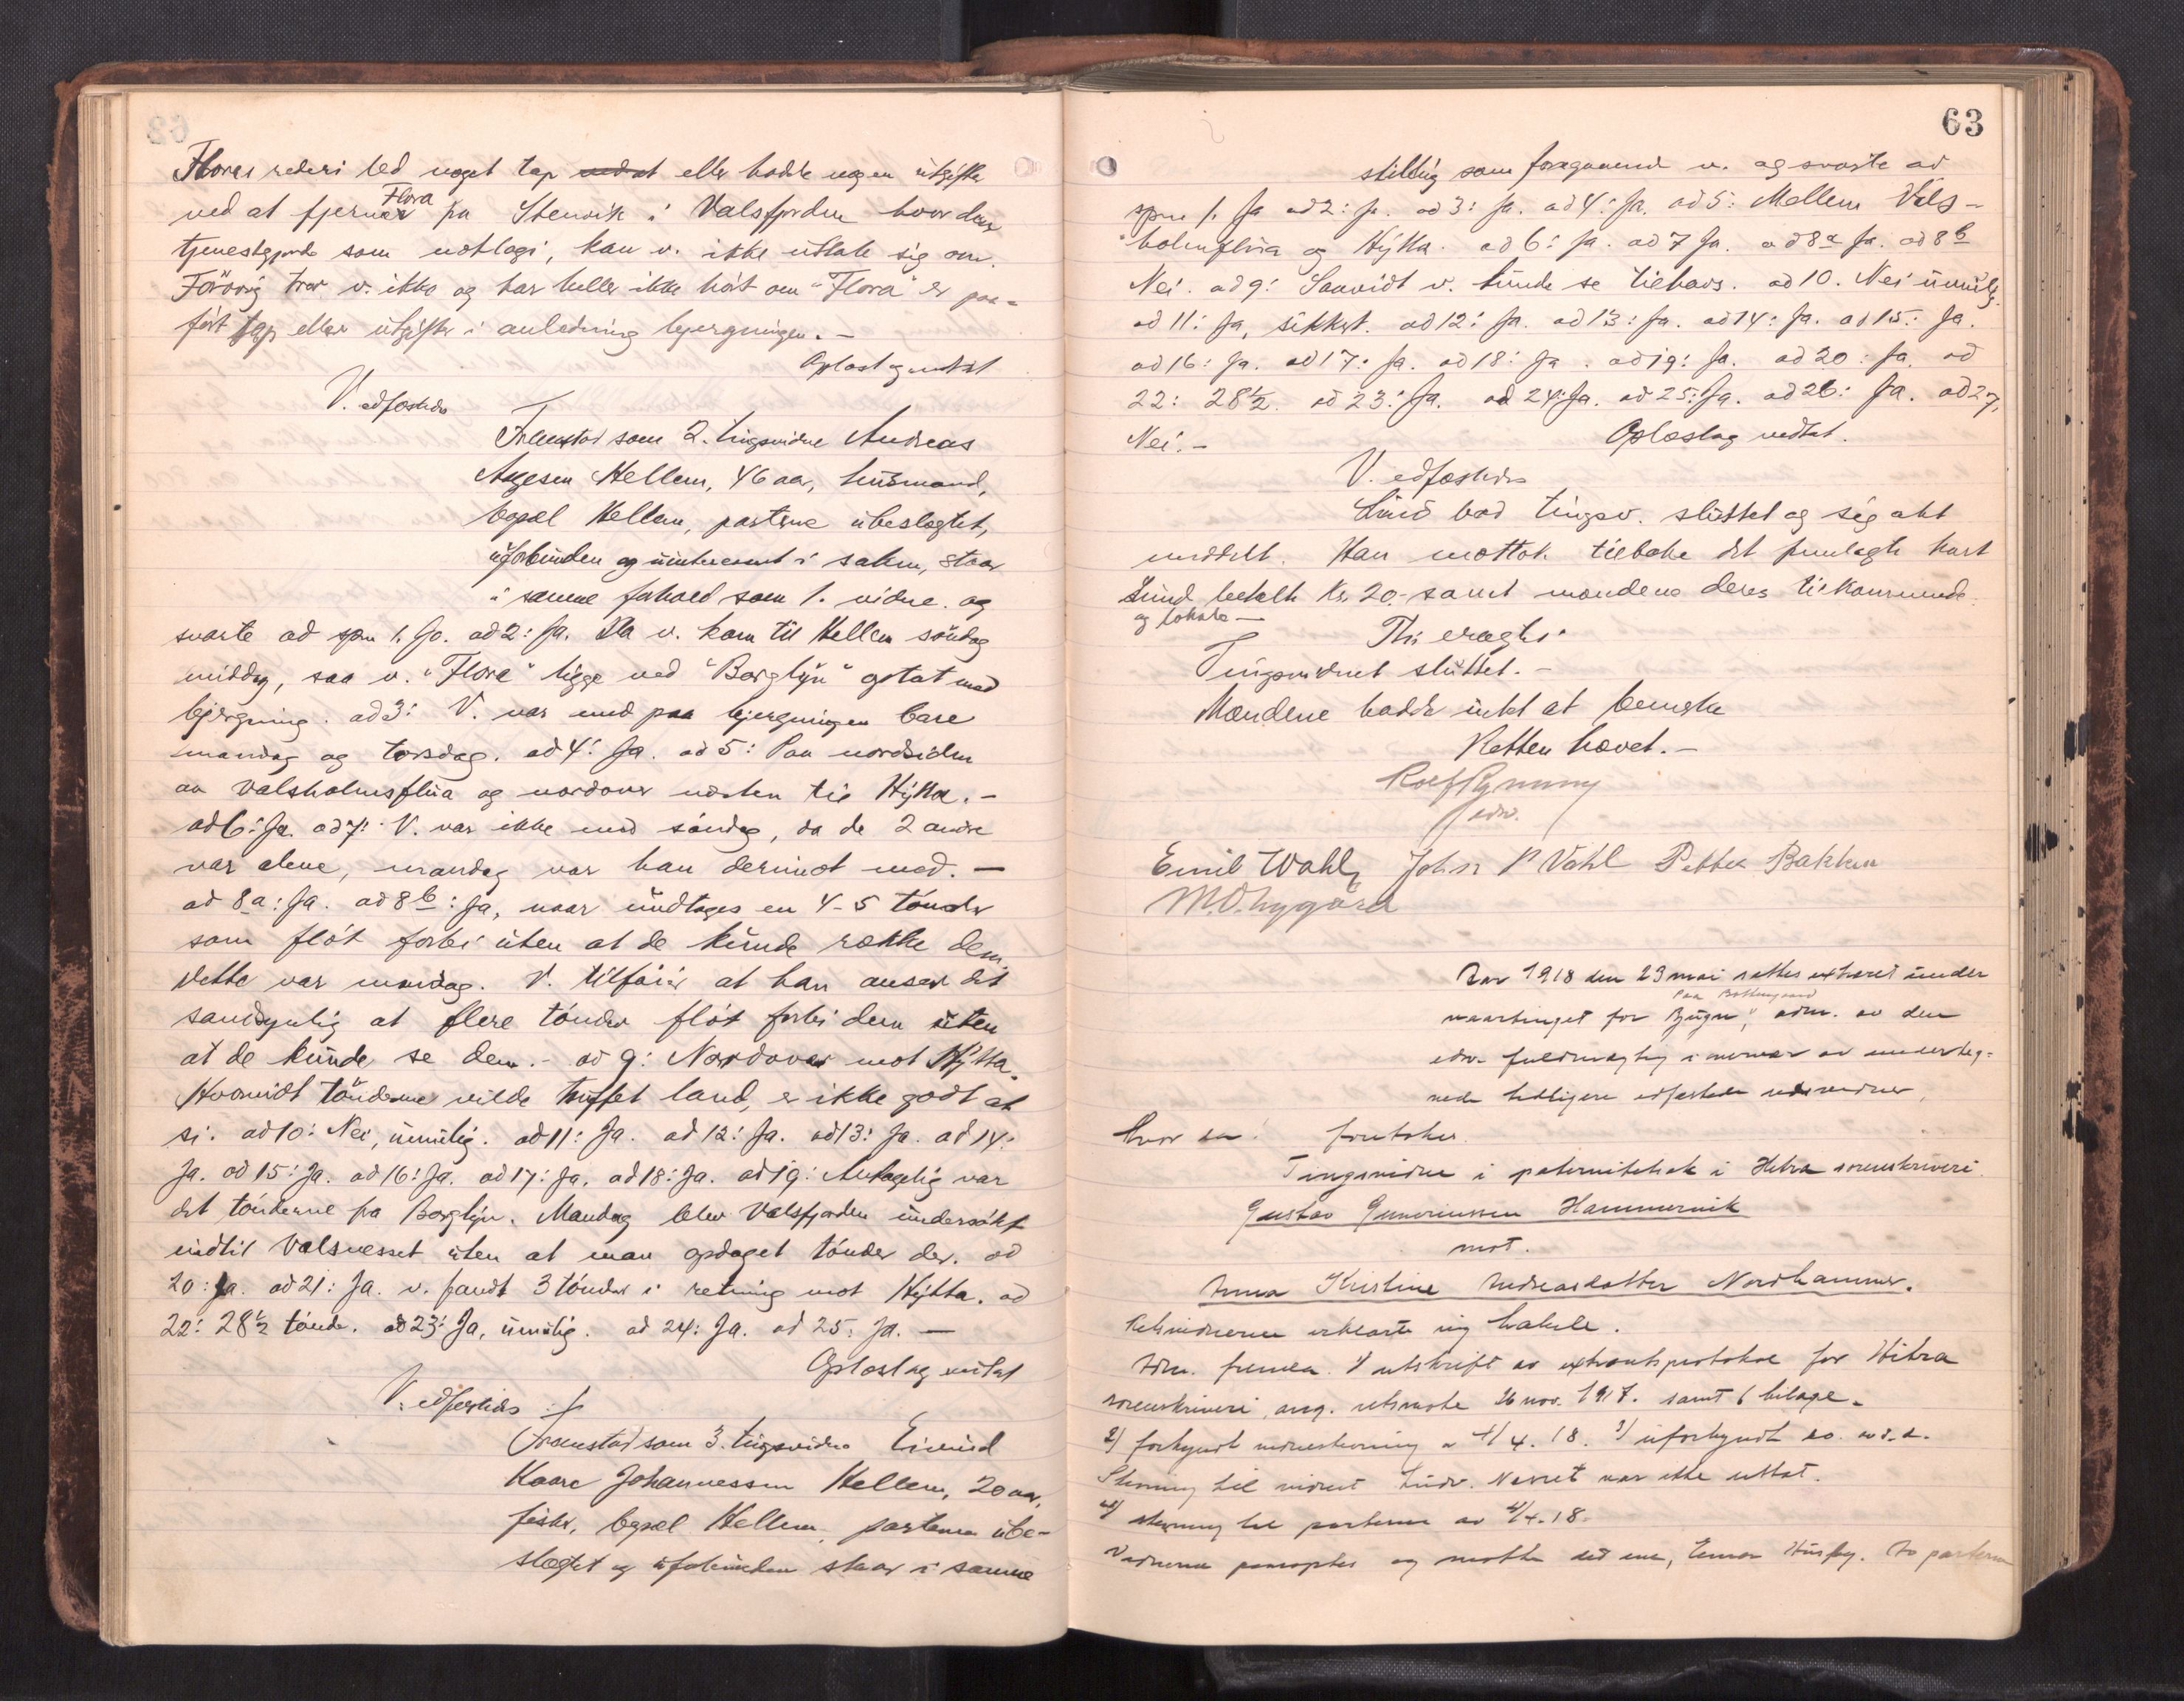 Floras rederi led noget tap eller hadde nogen utgifter
ved at fjerne Flora fra Stenvik i Valsfjorden hvor den
tjenestgjorde som notlagi, kan v. ikke uttale sig om.
Forövrig tror v. ikke og har heller ikke hört om "Flora" er paa-
fört tap eller utgifter i anledning bjergningen. -
Oplæst og vedtat
V. edfæstedes
Fremstod som 2. tingsvidne Andreas
Aagesen Hellem, 46 aar, husmand,
bopæl Hellem, parterne ubeslægtet,
uforbunden og uinteressert i saken, staar
i samme forhold som 1. vidne og
svarte ad spm 1. Ja. ad 2: Ja. Da v. kom til Hellem söndag
middag, saa v. "Flora" ligge ved "Borglyn" optat med
bjergning. ad 3: V. var med paa bjergningen bare
mandag og torsdag. ad 4: Ja. ad 5: Paa nordsiden
av Valsholmsflua og nordover næsten til Hýtta. -
ad 6: Ja. ad 7: V. var ikke med söndag, da de 2 andre
var alene, mandag var han derimot med. -
ad 8a: Ja. ad 8b: Ja, naar undtages en 4-5 tönder
som flöt forbi uten at de kunde række dem.
Dette var mandag. V. tilföier at han anser det
sandsynlig at flere tönder flöt forbi dem uten
at de kunde se dem. - ad 9: Nordover mot Hýtta.
Hvorvidt tönderne vilde truffet land, er ikke godt at
si. ad 10: Nei, umulig. ad 11: Ja. ad 12: Ja. ad 13: Ja. ad 14:
Ja. ad 15: Ja. ad 16: Ja. ad 17: Ja. ad 18: Ja. ad 19: Antagelig var
det tönderne fra Borglyn. Mandag blev Valsfjorden undersökt
indtil Valsnesset uten at man opdaget tönder der. ad
20: Ja. ad 21: Ja. v. fandt 3 tönder i retning mot Hýtta. ad
22: 28½ tönde. ad 23: Ja, umulig. ad 24: Ja. ad 25: Ja. -
Oplæst og vedtat
V. edfæstedes
Fremstod som 3. tingsvidne Eivind
Kaare Johannessen Hellem, 20 aar,
fisker, bopæl Hellem, parterne ube-
slægtet og uforbunden staar i samme
63
stilling som foregaaende v. og svarte ad
spm 1. Ja ad 2: Ja. ad 3: Ja. ad 4: Ja. ad 5: Mellem Vals-
holmflua og Hýtta. ad 6: Ja. ad 7 Ja. ad 8a Ja. ad 8b
Nei. ad 9: Saavidt v. kunde se tilhavs. ad 10. Nei umulig.
ad 11: Ja, sikkert. ad 12: Ja. ad 13: Ja. ad 14: Ja. ad 15: Ja.
ad 16: Ja. ad 17: Ja. ad 18: Ja. ad 19: Ja. ad 20: Ja. ad
22: 28½. ad 23: Ja. ad 24: Ja. ad 25: Ja. ad 26: Ja. ad 27.
Nei. -
Oplæst og vedtat.
V. edfæstedes
Lund bad tingsv. sluttet og sig akt
meddelt. Han mottok tilbake det fremlagte kart
Lund betalte Kr. 20.- samt mændene deres tilkommende
og lokale -
Thi eragtes:
Tingsvidnet sluttet. -
Mændene hadde intet at bemerke
Retten hævet. -
edv.
Emil Wahl, John P Vahl Petter Bakken
M. O. Nygård
Aar 1918 den 23 mai sattes extraret under
paa Bottengaard
vaartinget for Bjugn, adm. av den
edsv. fuldmægtig i nærvær av underteg-
nede tidligere edfæstede retsvidner,
hvor da: foretokes
Tingsvidne i paternitetssak i Hitra sorenskriveri.
Gustav Gunerinssen Hammervik
mot.
Anna Kristine Andreasdatter Nordhammer.
Retsvidnerne erklærte sig habile.
Adm. fremla 1) utskrift av extraretsprotokol for Hitra
sorenskriveri, ang. retsmøte 26 nov. 1917. samt 6 bilage.
2) forkyndt vidnestevning av 4/4. 18. 3) uforkyndt do. av s.d.
Stevning til vidnet Nævnet var ikke uttat.
4) stevning til parterne av 4/4. 18.
Vidnerne paaroptes og møtte det ene, Av parterne